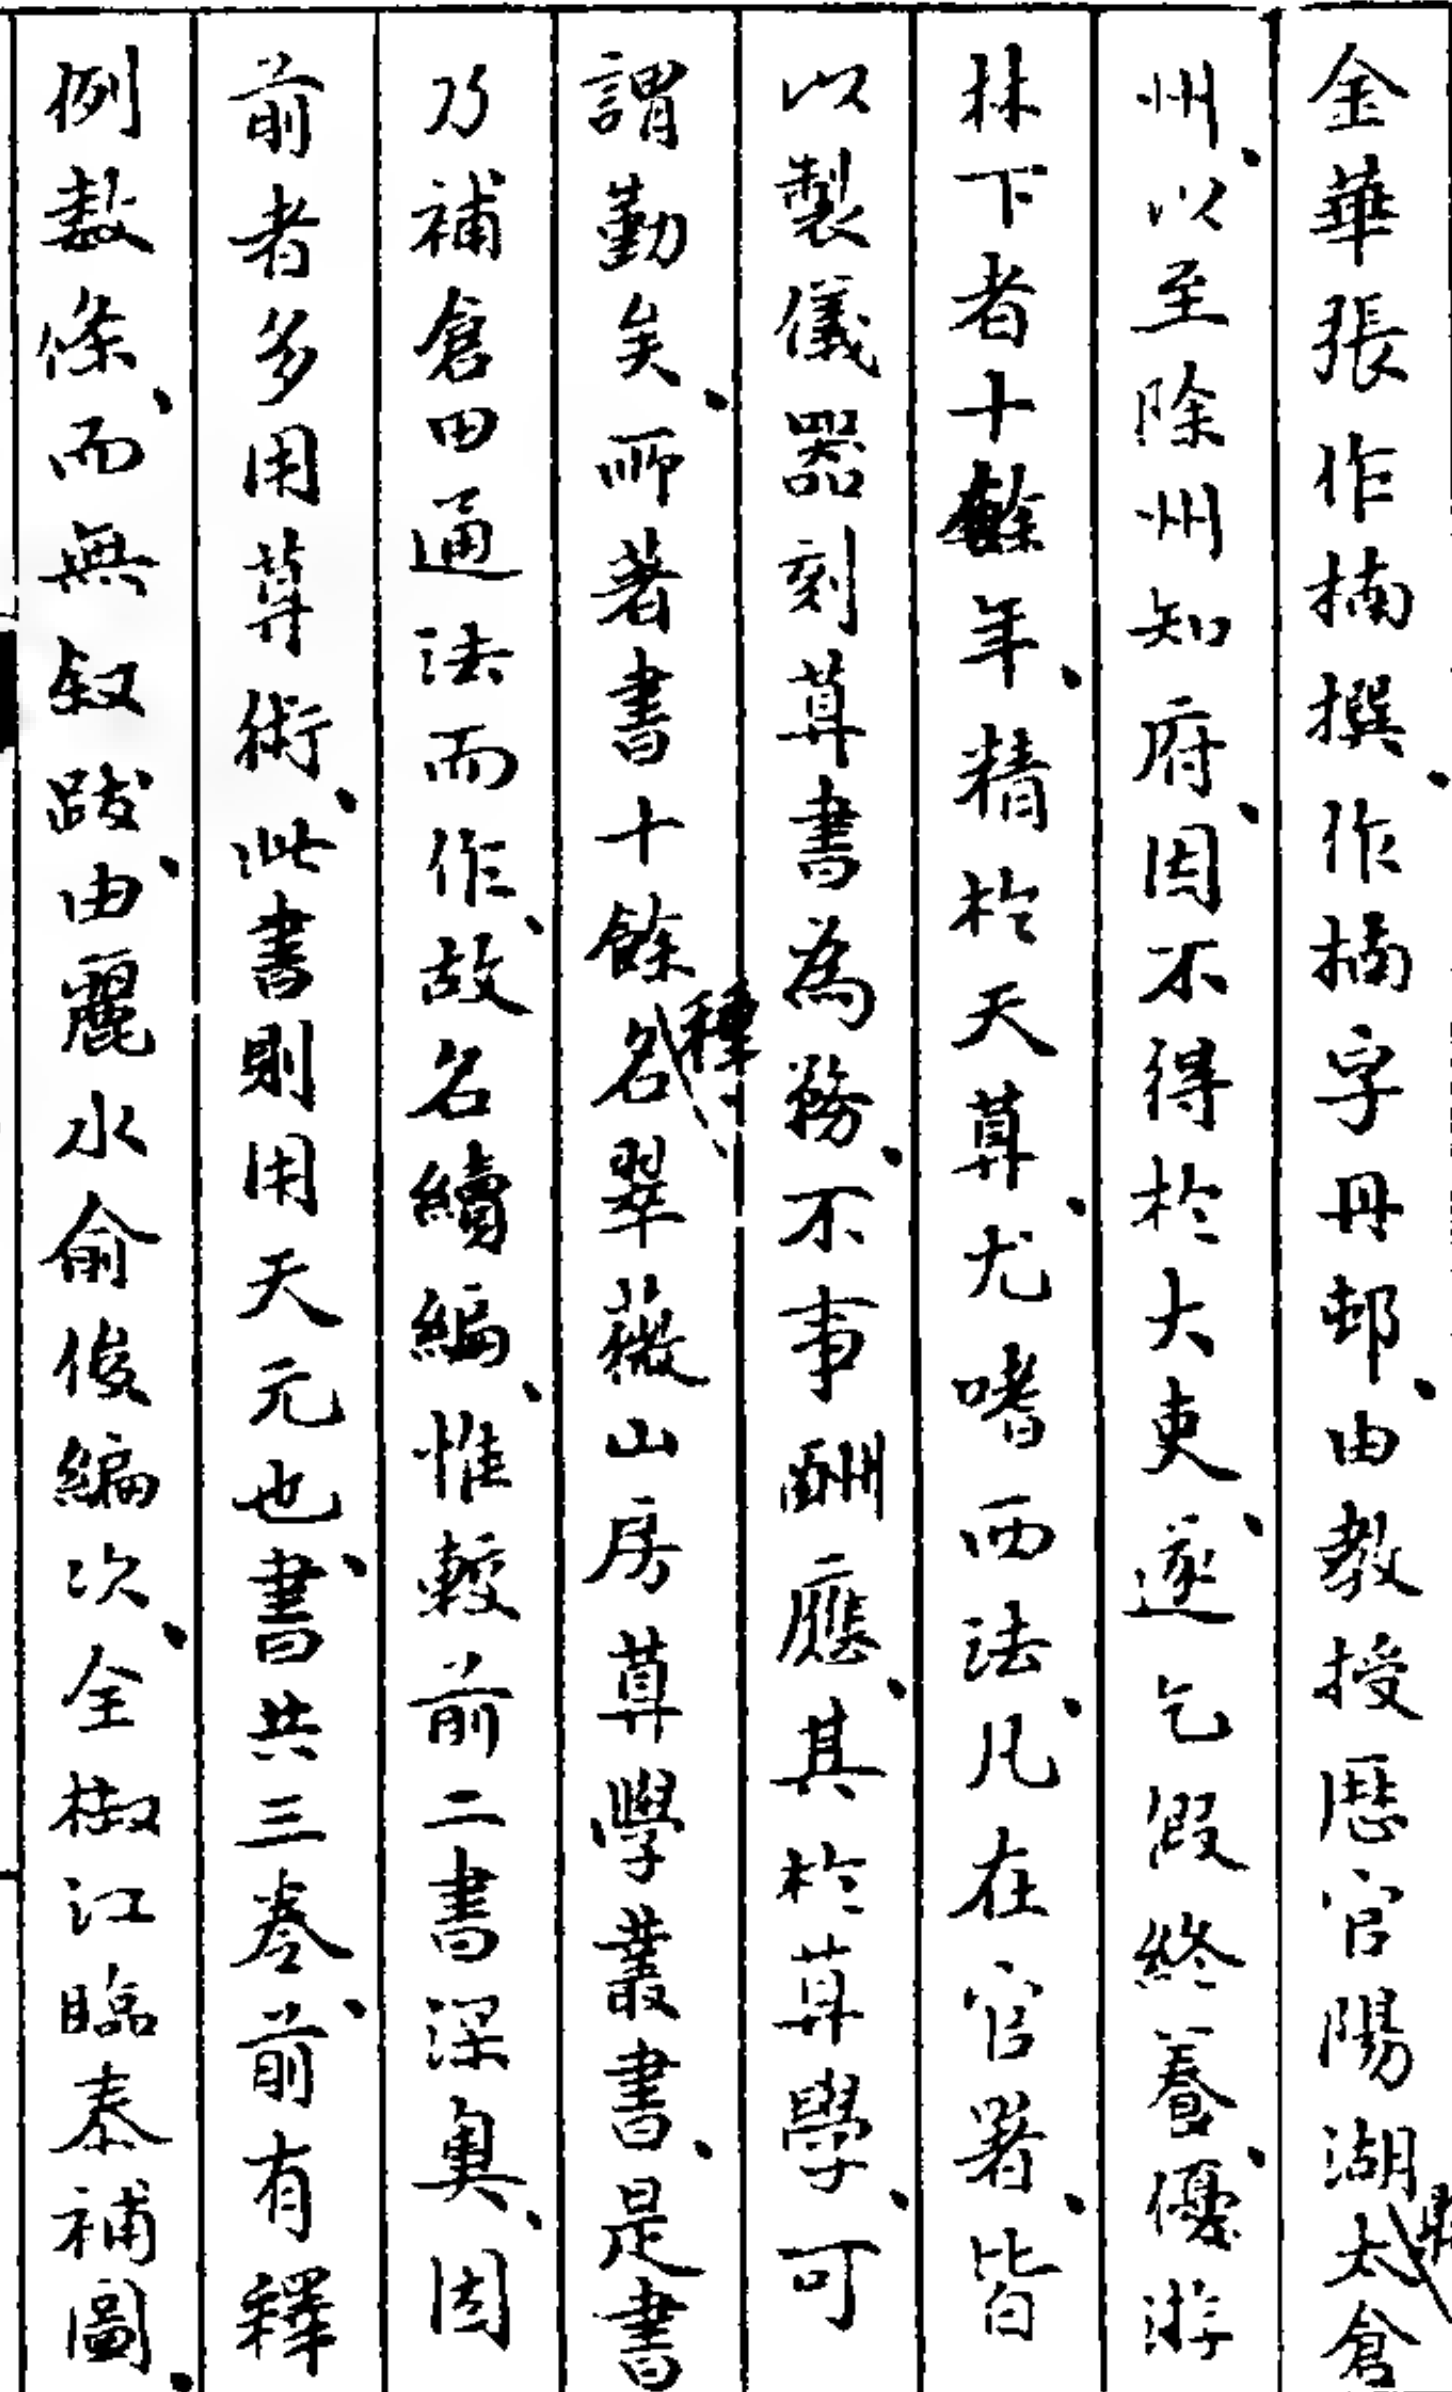 金華張作楠撰、作楠字丹邨、由教授歷官陽湖太倉
州、以至除州知府、因不得於大吏、遂乞假終養、優游
林下者十餘年、精於天算、尤嗜西法、凡在官署、皆
以製儀器刻算書為務、不事酬應、其於算學、可
謂勤矣、所著書十餘種名翠薇山房算學叢書、是書
乃補倉田通法而作、故名續編、惟較前二書深奧、因
前者多用算術、此書則用天元也、書共三卷、前有釋
例數條、而無叙跋、由麗水俞俊編次、全椒江臨泰補圖、